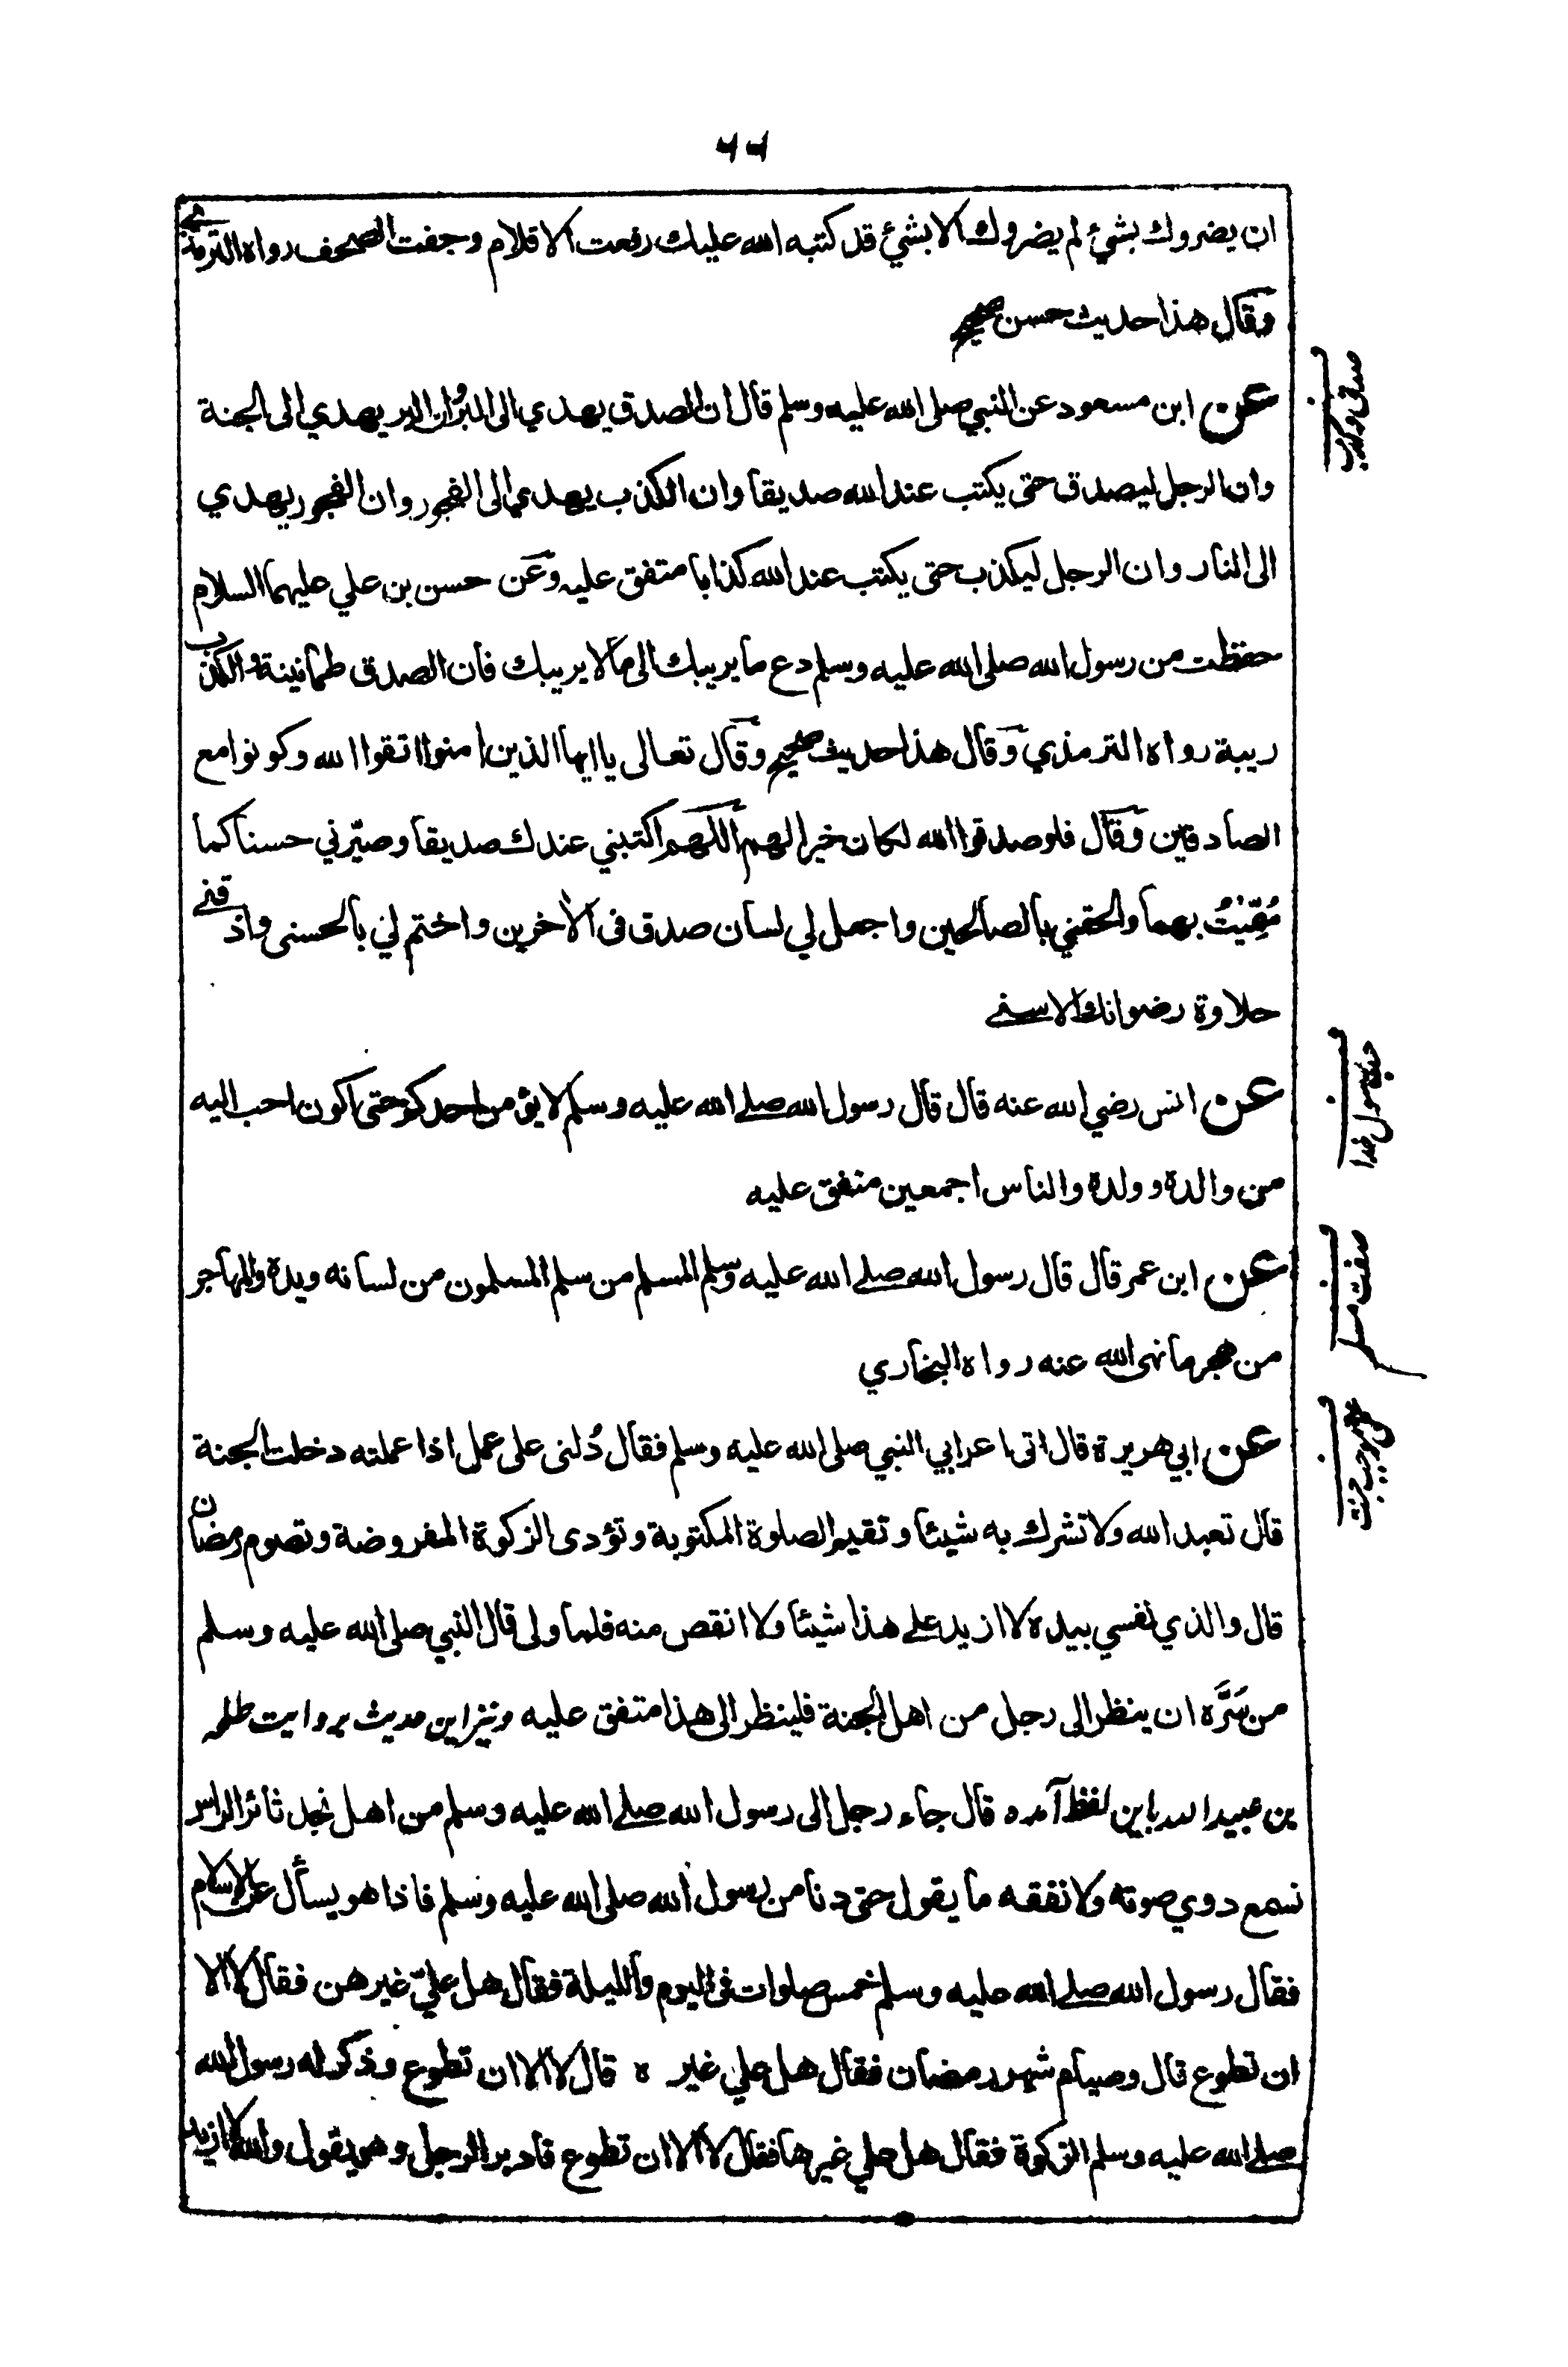 ۶۶
ان يضروك بشيء لم يضروك الا بشيء قد كتبه الله عليك رفعت الاقلام وجفت الصحف رواه الترمذي
وقال هذا حديث حسن صحيح
صدق وكذب
عن ابن مسعود عن النبي صلى الله عليه وسلم قال ان الصدق يهدي الى البر وان البر يهدي الى الجنة
وان الرجل ليصدق حتى يكتب عند الله صديقا وان الكذب يهدي الى الفجور وان الفجور يهدي
الى النار وان الرجل ليكذب حتى يكتب عند الله كذابا متفق عليه وعن حسن بن علي عليهما السلام
حفظت من رسول الله صلى الله عليه وسلم دع ما يريبك الى ما لا يريبك فان الصدق طمانينة والكذب
ريبة رواه الترمذي وقال هذا حديث صحيح وقال تعالى يا ايها الذين امنوا اتقوا الله وكونوا مع
الصادقين وقال فلو صدقوا الله لكان خيرا لهم اللهم اكتبني عندك صديقا وصيّرني حسنا كما
سُمِّيْتُ بهما والحقني بالصالحين واجعل لي لسان صدق فى الاخرين واختم لي بالحسنى واذقنے
حلاوة رضوانك الاسنے
رسول خدا
عن انس رضي الله عنه قال قال رسول الله صلے الله عليه وسلم لا يؤمن احدكم حتى اكون احب اليه
من والده وولده والناس اجمعين متفق عليه
صفت مسلم
عن ابن عمر قال قال رسول الله صلے الله عليه وسلم المسلم من سلم المسلمون من لسانه ويده والمهاجر
من هجر ما نهى الله عنه رواه البخاري
موجب جنت
عن ابي هريرة قال اتى اعرابي النبي صلى الله عليه وسلم فقال دُلنى على عمل اذا عملته دخلت الجنة
قال تعبد الله ولا تشرك به شيئا وتقيم الصلوة المكتوبة وتؤدى الزكوة المفروضة وتصوم رمضان
قال والذي نفسي بيده لا ازيد علے هذا شيئا ولا انقص منه فلما ولى قال النبي صلى الله عليه وسلم
من سَرَّه ان ينظر الى رجل من اهل الجنة فلينظر الى هذا متفق عليه ونيز اين حديث بروايت طلحه
بن عبيد الله باين لفظ آمده قال جاء رجل الى رسول الله صلے الله عليه وسلم من اهل نجد ثائر الراس
نسمع دوي صوته ولا نفقه ما يقول حتى دنا من رسول الله صلى الله عليه وسلم فاذا هو يسأل عن الاسلام
فقال رسول الله صلے الله عليه وسلم خمس صلوات فى اليوم والليلة فقال هل عليّ غيرهن فقال لا الا
ان تطوع قال وصيام شهر رمضان فقال هل علي غيره قال لا الا ان تطوع وذكر له رسول الله
صلے الله عليه وسلم الزكوة فقال هل علي غيرها فقال لا الا ان تطوع فادبر الرجل وهو يقول والله لا ازيد